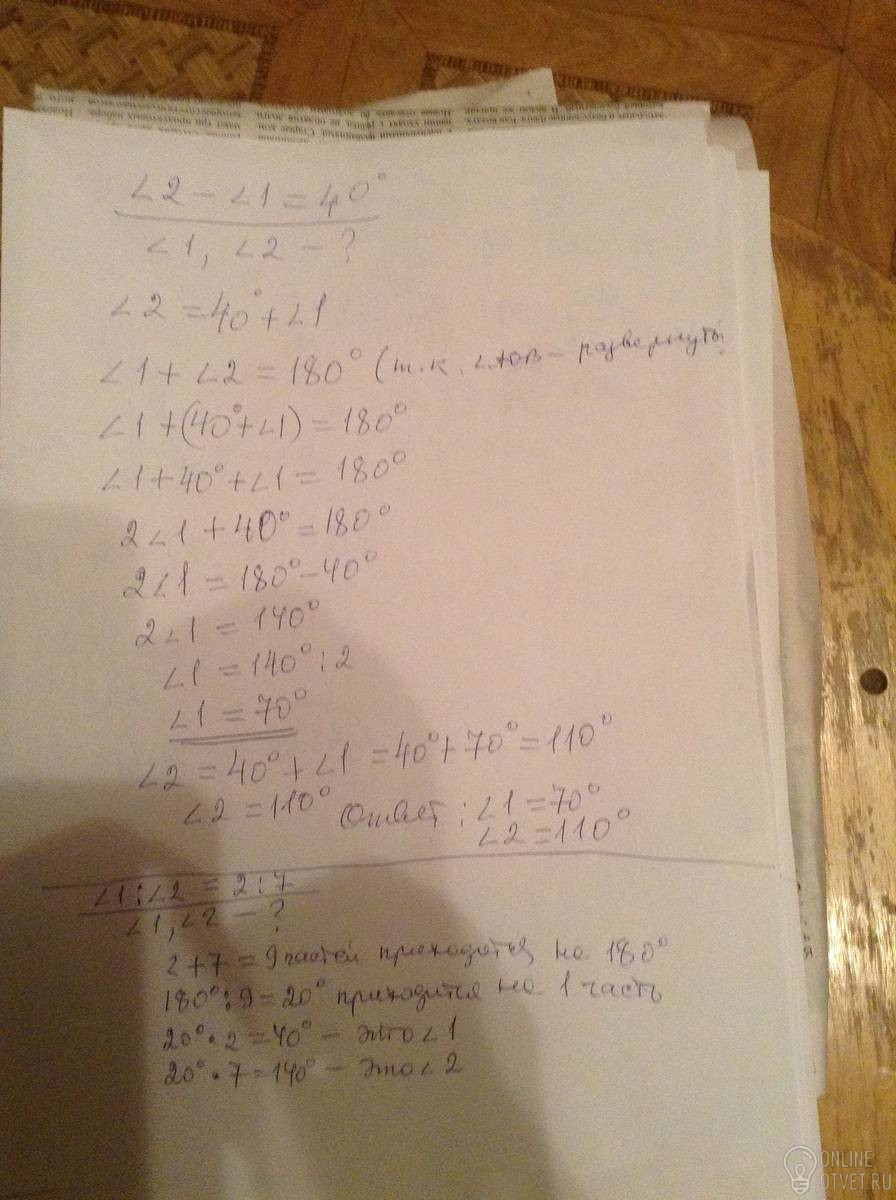 ∠2 − ∠1 = 40°
∠1, ∠2 − ?
∠2 = 40° + ∠1
∠1 + ∠2 = 180° (т.к. ∠AOB − развернуты
∠1 + (40° + ∠1) = 180°
∠1 + 40° + ∠1 = 180°
2∠1 + 40° = 180°
2∠1 = 180° − 40°
2∠1 = 140°
∠1 = 140° : 2
∠1 = 70°
∠2 = 40° + ∠1 = 40° + 70° = 110°
∠2 = 110° Ответ : ∠1 = 70°
∠2 = 110°
∠1 : ∠2 = 2 : 7
∠1, ∠2 − ?
2 + 7 = 9 частей приходятся на 180°
180° : 9 = 20° приходится на 1 часть
20° · 2 = 40° − это ∠1
20° · 7 = 140° − это ∠2
ONLINE
OTVET.RU